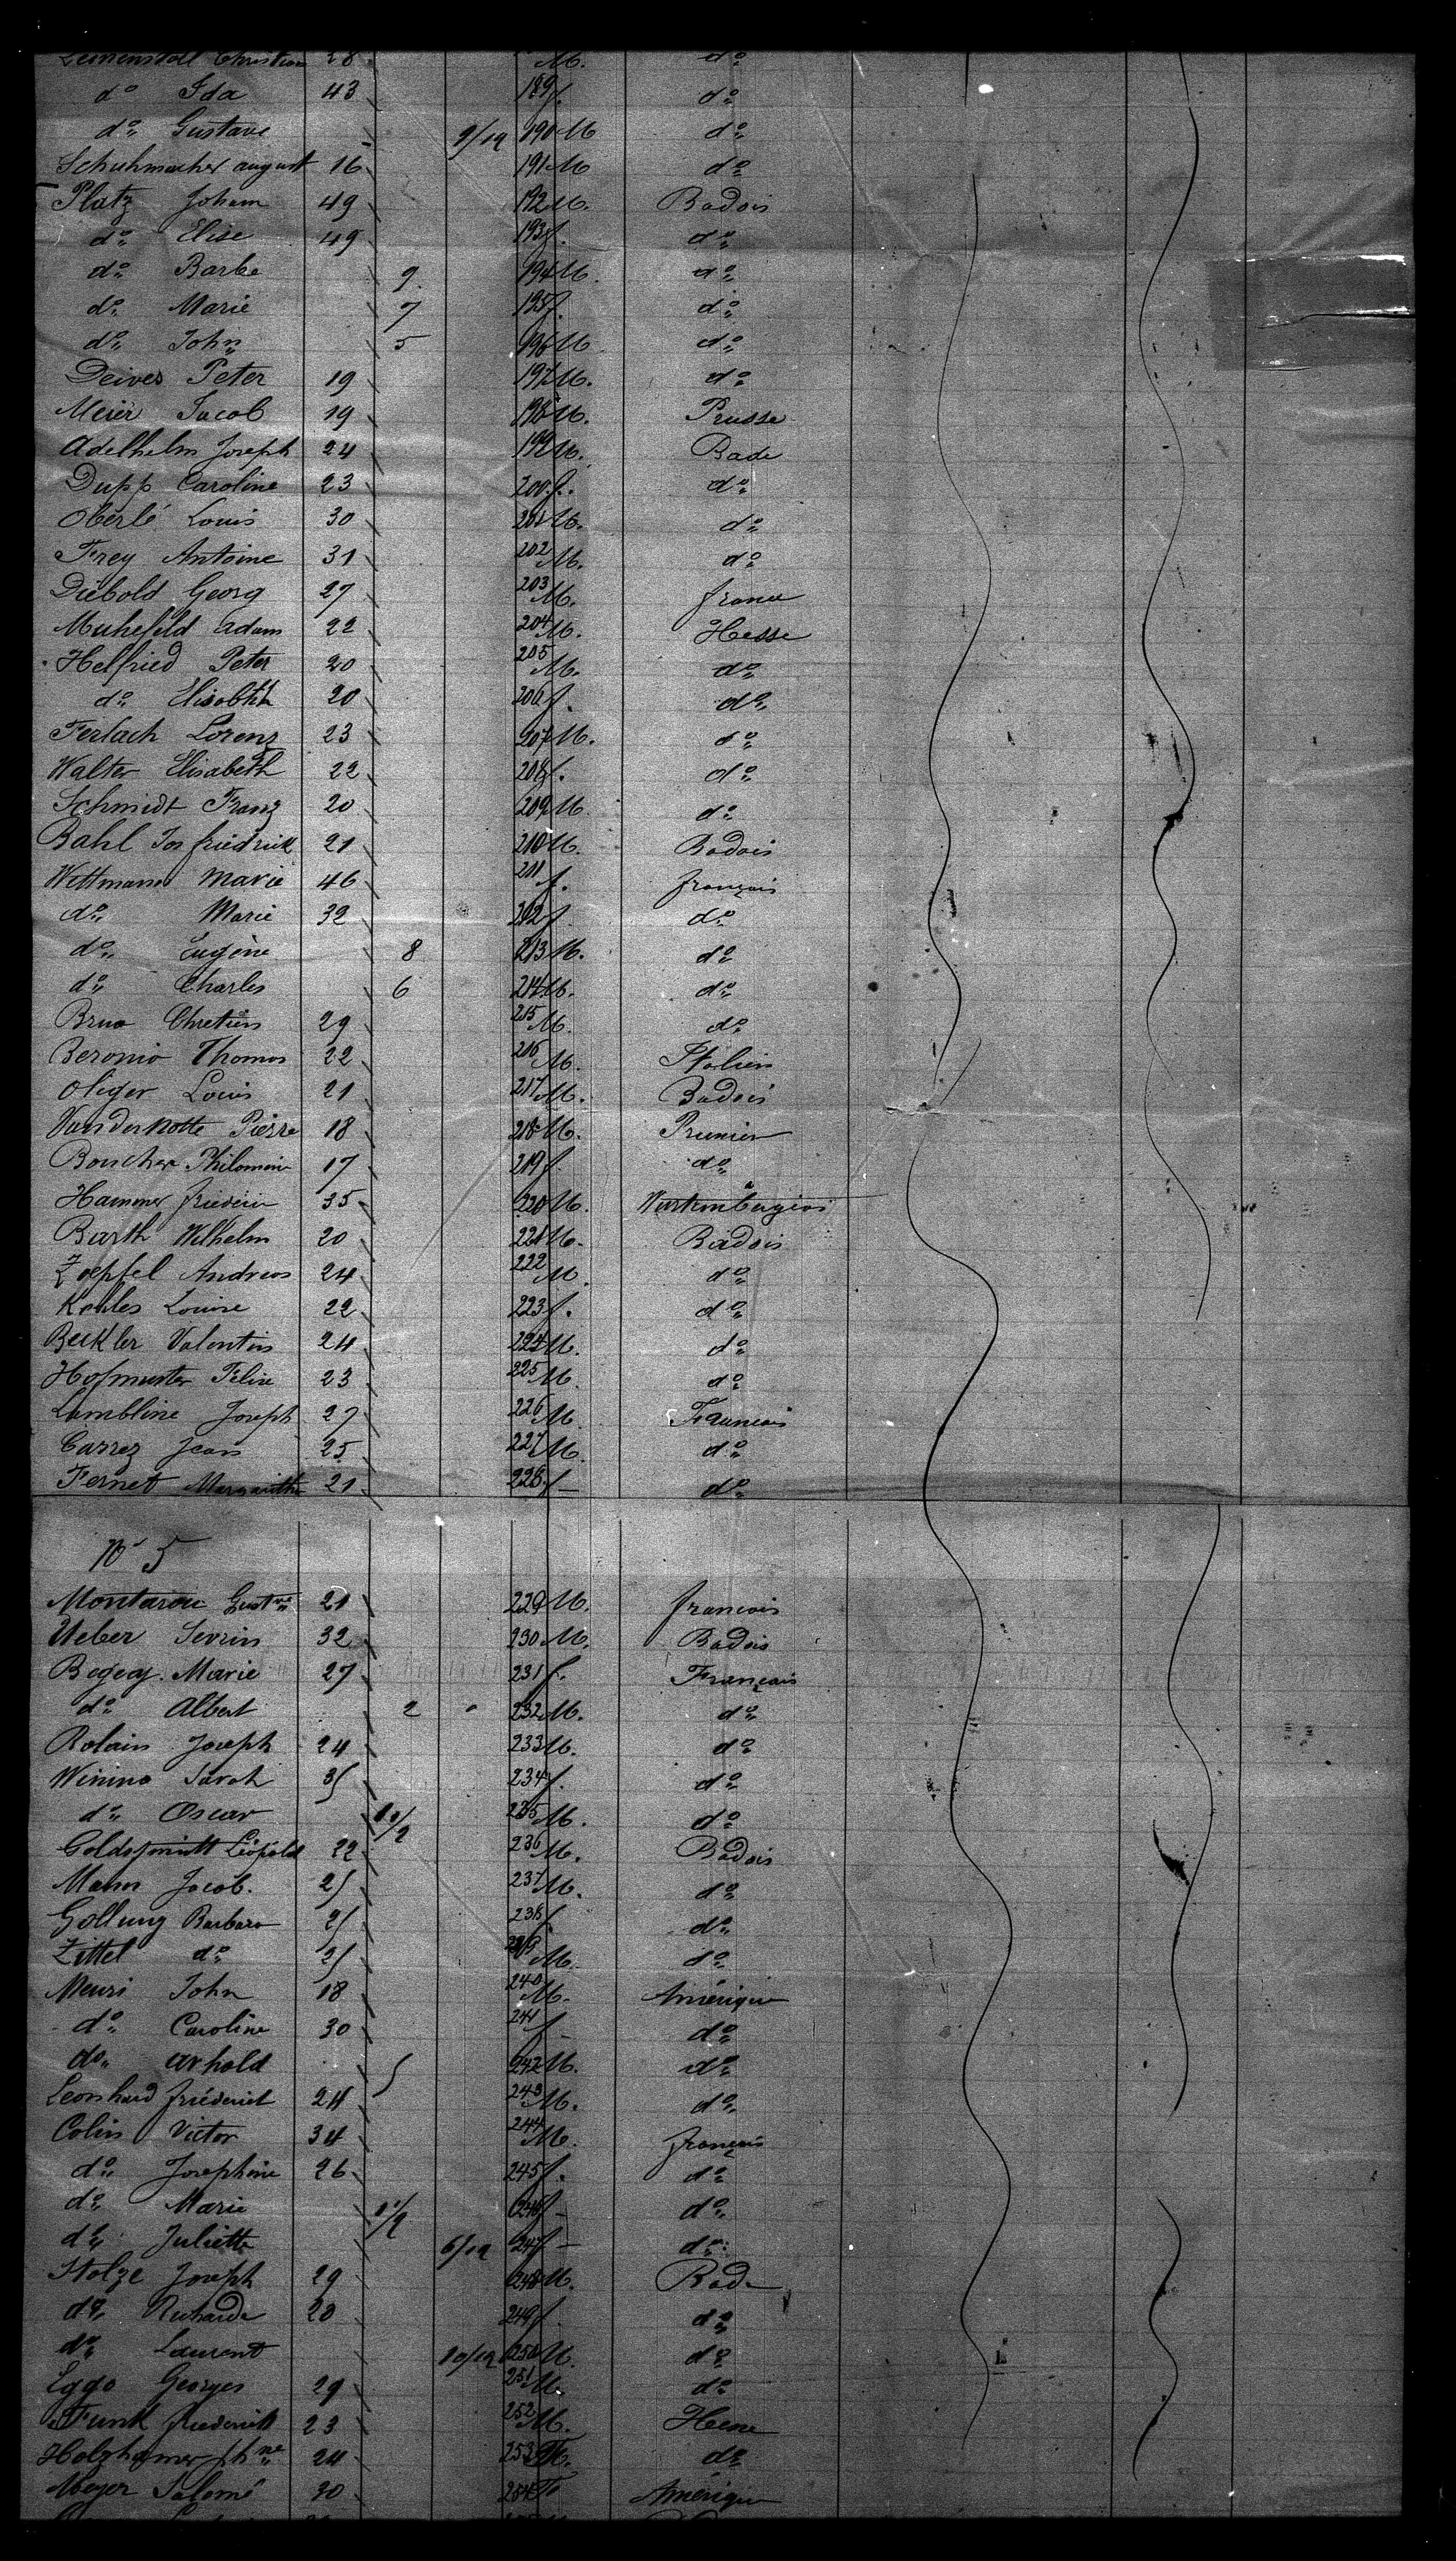 Christian 28 M. do
do Ida 43 189 f. do
do Gustave 9/12 190 M do
Schuhmacher august 16 191 M do
Platz Johann 49 192 M. Badois
do Elise 49 193 f. do
do Barbe 9 194 M. do
do Marie 7 195 f. do
do John 5 196 M do
Deives Peter 19 197 M. do
Meier Jacob 19 198 M. Prusse
Adelhelm Joseph 24 199 M. Bade
Dupp Caroline 23 200 f. do
Oberlé Louis 30 201 M. do
Frey Antoine 31 202 M. do
Diebold Georg 27 203 M. france
Muhefeld Adam 22 204 M. Hesse
Helfried Peter 20 205 M. do
do Elisabth 20 206 f. do
Ferlach Lorenz 23 207 M. do
Walter Elisabeth 22 208 f. do
Schmidt Franz 20 209 M do
Bahl Jos friedrich 21 210 M. Badois
Wittmann Marie 46 211 f. français
do Marie 32 212 f do
do Eugène 8 213 M. do
do Charles 6 214 M. do
Brua Chretien 29 215 M. do
Beronio Thomas 22 216 M. Italien
Oliger Louis 21 217 M. Badois
Vandernotte Pierre 18 218 M. Prussien
Boucher Philomin 17 219 f do
Hammer friederic 35 220 M. Wurtembergeois
Barth Wilhelm 20 221 M. Badois
Zoepfel Andreas 24 222 M. do
Kohles Louise 22 223 f. do
Beckler Valentin 24 224 M. do
Hofmuster Felix 23 225 M. do
Lambline Joseph 27 226 M Français
Carrez Jean 25 227 M. do
Fernet Margarithe 21 228 f do
No 5
Montarou Gustve 21 229 M. francois
Weber Sevrin 32 230 M. Badois
Begeay Marie 27 231 f. Français
do Albert 2 232 M. do
Rolain Joseph 24 233 M. do
Winina Sarah 35 234 f. do
do Oscar 1 1/2 235 M. do
Goldschmitt Léopold 22 236 M. Badois
Mann Jacob. 25 237 M. do
Gollung Barbara 25 238 f do
Zittel do 25 239 M. do
Meuri John 18 240 M. Amérique
do Caroline 30 241 f do
do Arnold 5 242 M. do
Leonhard friéderick 24 243 M. do
Colin Victor 34 244 M. français
do Josephine 26 245 f. do
do Marie 1 1/2 246 f do
do Juliette 6/12 247 f do
Stolze Joseph 29 248 M. Bade
do Richarda 20 249 f do
do Laurent 10/12 250 M. do
Eggo Georges 29 251 M. do
Funk friederick 23 252 M. Hesse
Holzhamer phne 24 253 do
Meyer Salomé 30 254 F Amérique